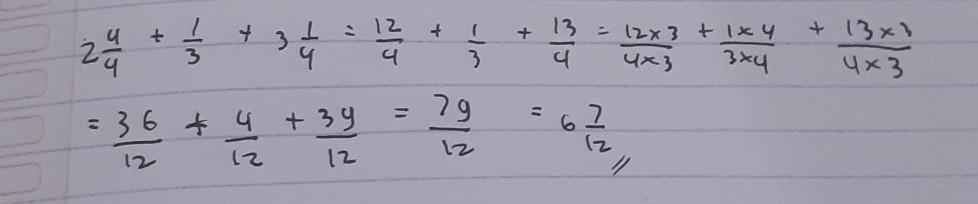 2 4/4 + 1/3 + 3 1/4 = 12/4 + 1/3 + 13/4 = 12×3/4×3 + 1×4/3×4 + 13×3/4×3
= 36/12 + 4/12 + 39/12 = 79/12 = 6 7/12 //